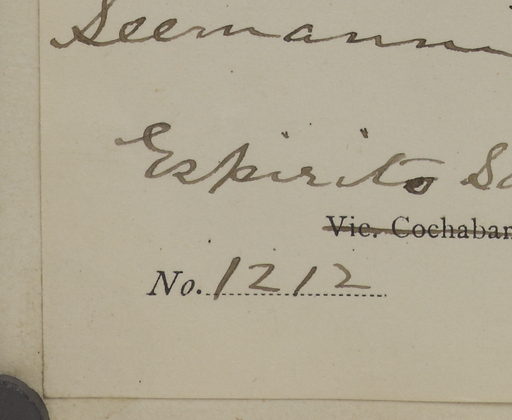 Seemann
Espirito
Vic. Cochabam
No. 1212